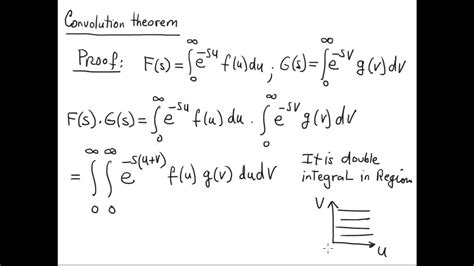 Convolution theorem
Proof: F(s)=∫₀^∞ e^{-su} f(u)du ; G(s)=∫₀^∞ e^{-sv} g(v)dv
F(s).G(s)=∫₀^∞ e^{-su} f(u) du . ∫₀^∞ e^{-sv} g(v)dv
=∫₀^∞ ∫₀^∞ e^{-s(u+v)} f(u) g(v) dudv
It is double
integral in Region
V
u